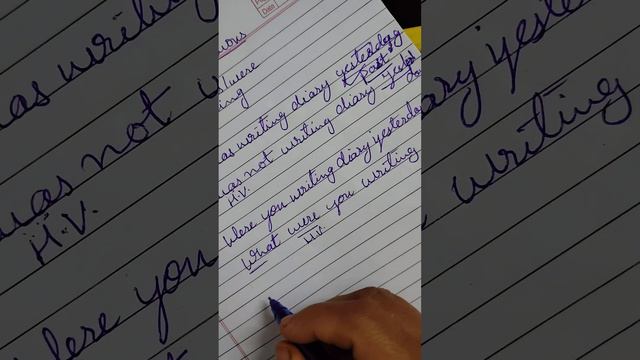 Date
uous
s/were
ing
as writing diary yesterday
Past
was not writing diary
H.V.
Were you writing diary yesterday
What were you writing
H.V.